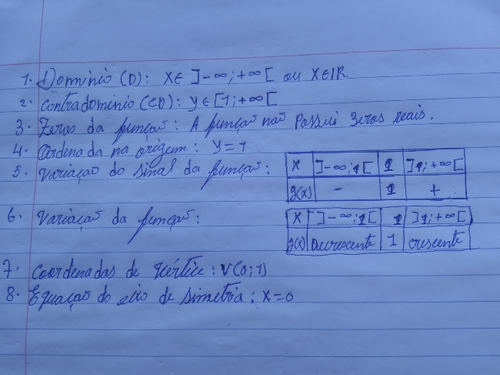 1. Dominio (D): X∈ ]-∞;+∞[ ou X∈IR
2. Contradominio (CD): y∈[1;+∞[
3. Zeros da função: A função não possui zeros reais.
4. Ordenada na origem: y=1
5. Variação do sinal da função: X ]-∞;1[ 1 ]1;+∞[
g(x) - 1 +
6. Variação da função: X ]-∞;1[ 1 ]1;+∞[
g(x) Decrescente 1 crescente
7. Coordenadas de vértice: V(0;1)
8. Equação do eixo de simetria: X=0